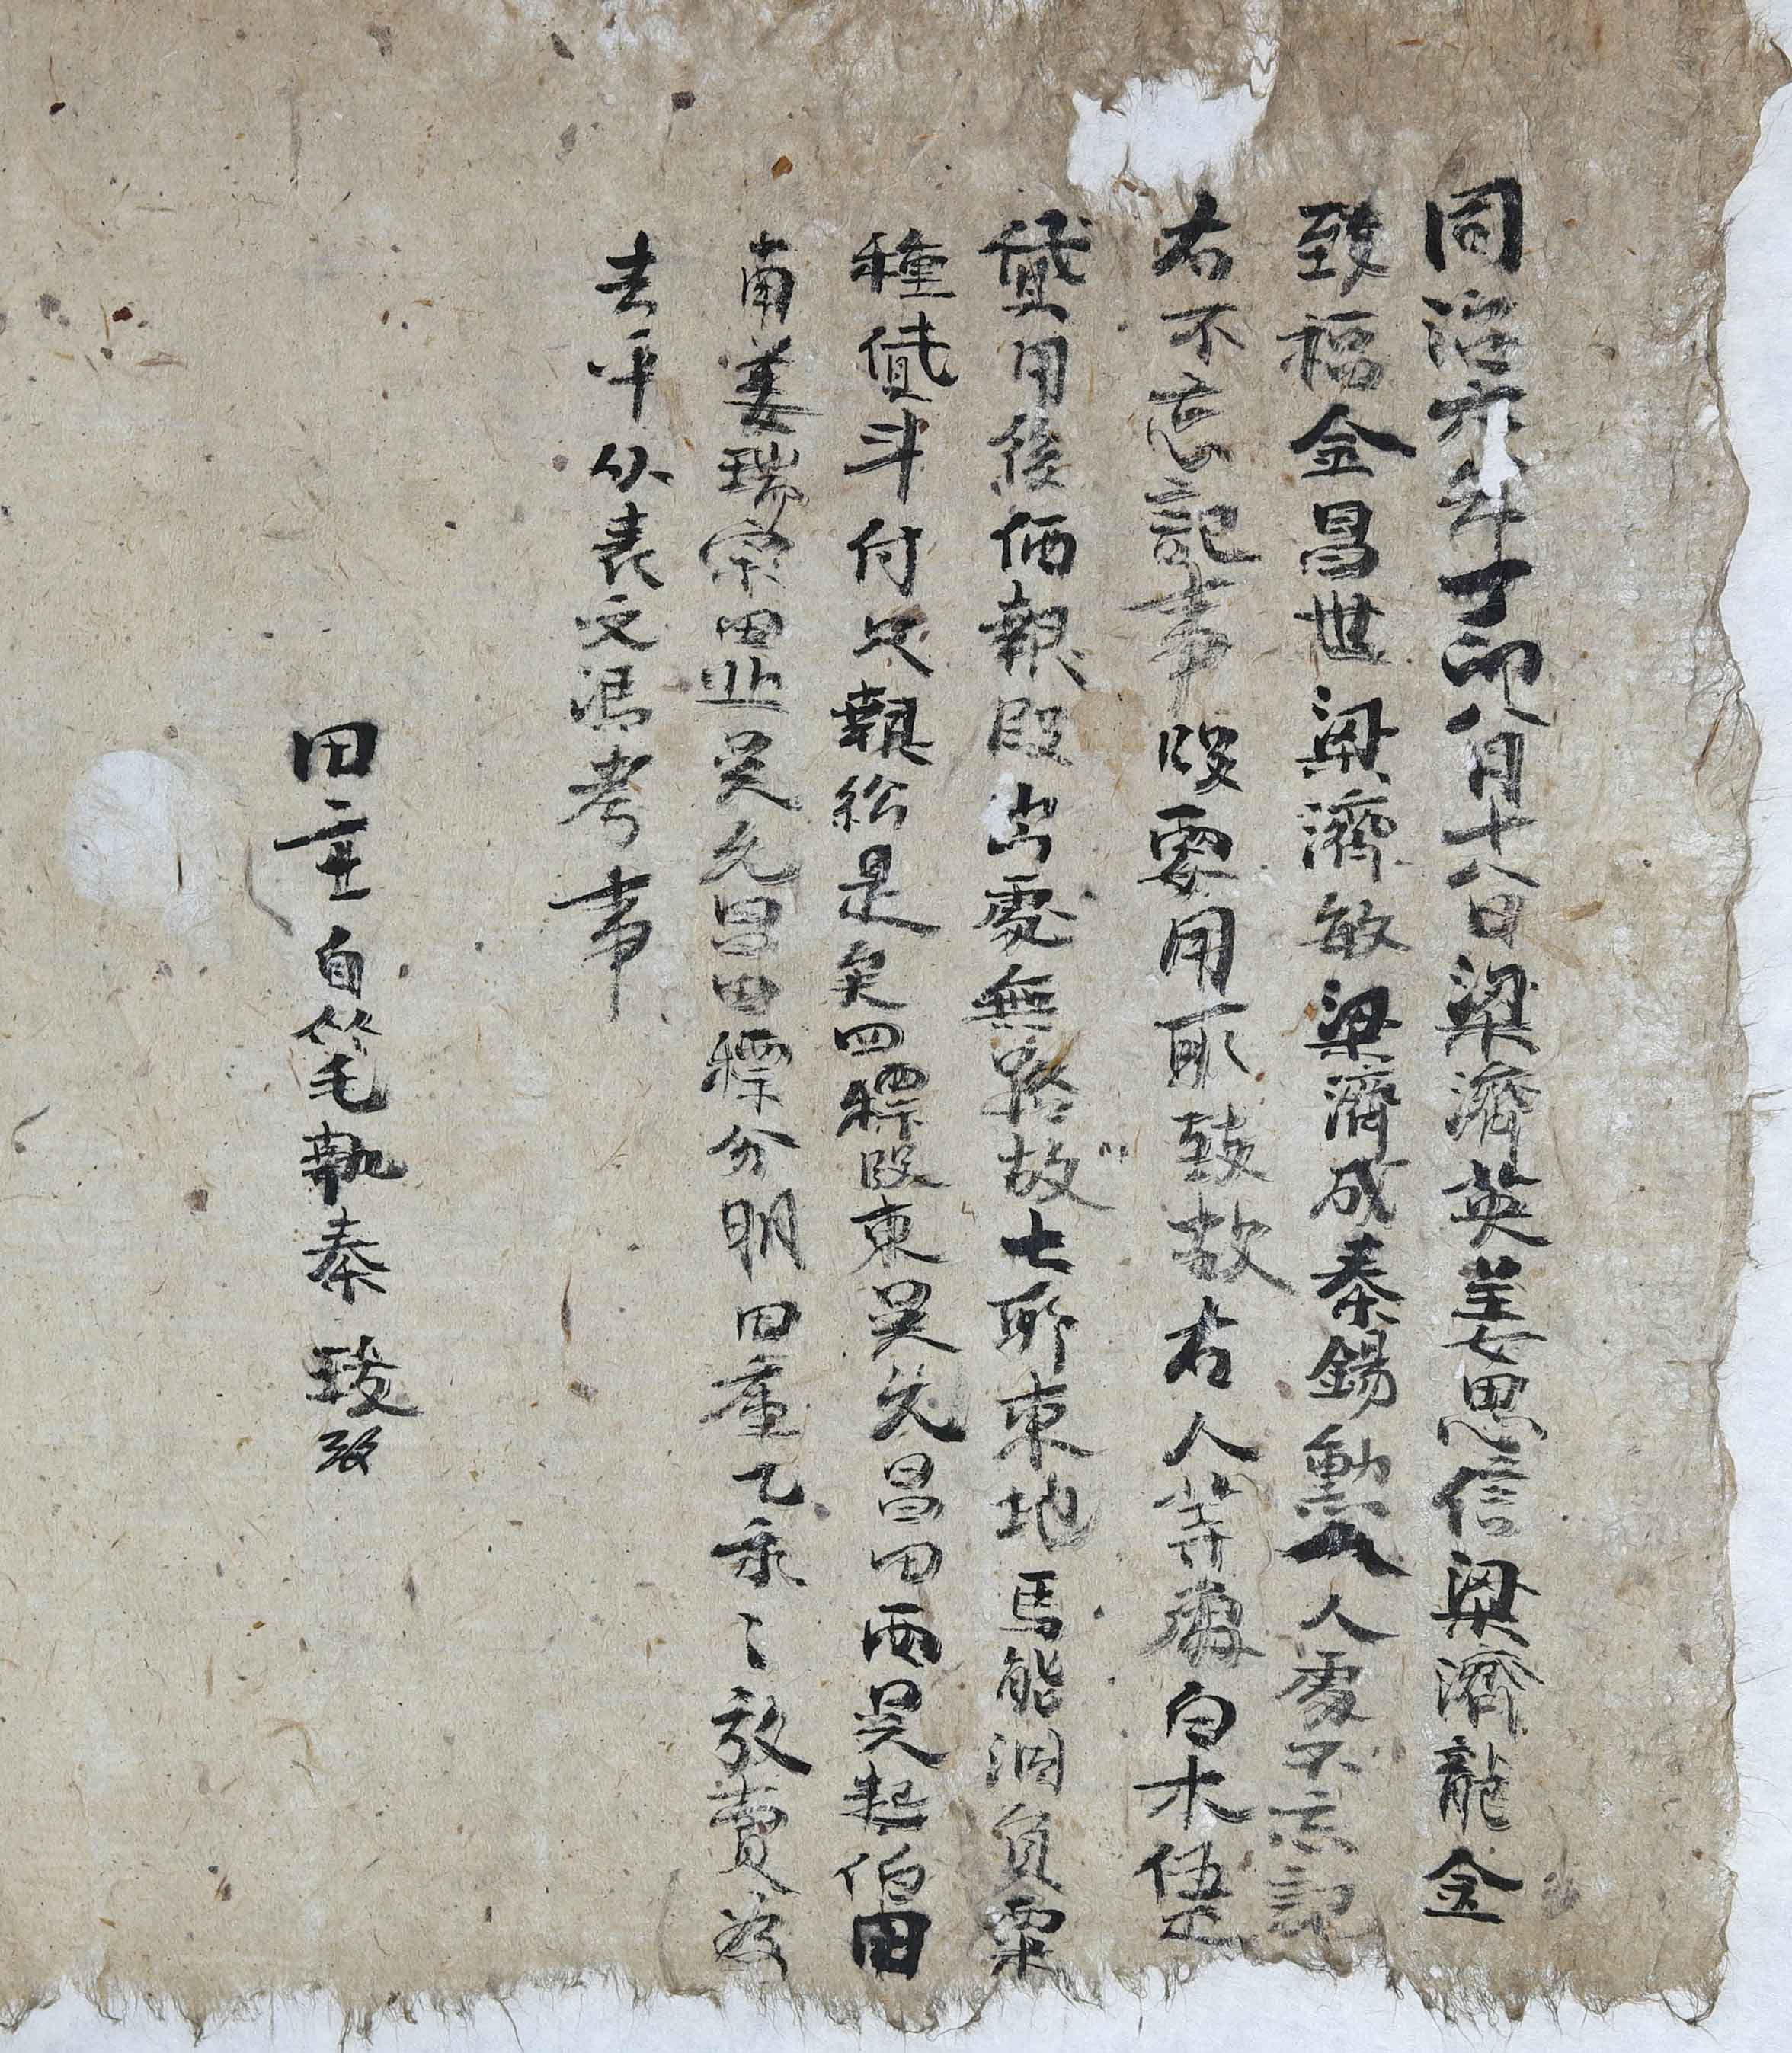 同治六年丁卯八月十八日梁濟英姜思信梁濟龍金
致福金昌世梁濟敏梁濟成秦錫勳人處不忘記
右不忘記事段要用所致故右人等處白木伍疋
貸用後価報段出處無路故七所東地馬能洞員粟
種貳斗付只報給是矣四標段東吳允昌田西吳起伯田
南姜瑞宗田北吳允昌田標分明田庫乙永〻放賣為
去乎以表文憑考事
田主自筆執秦